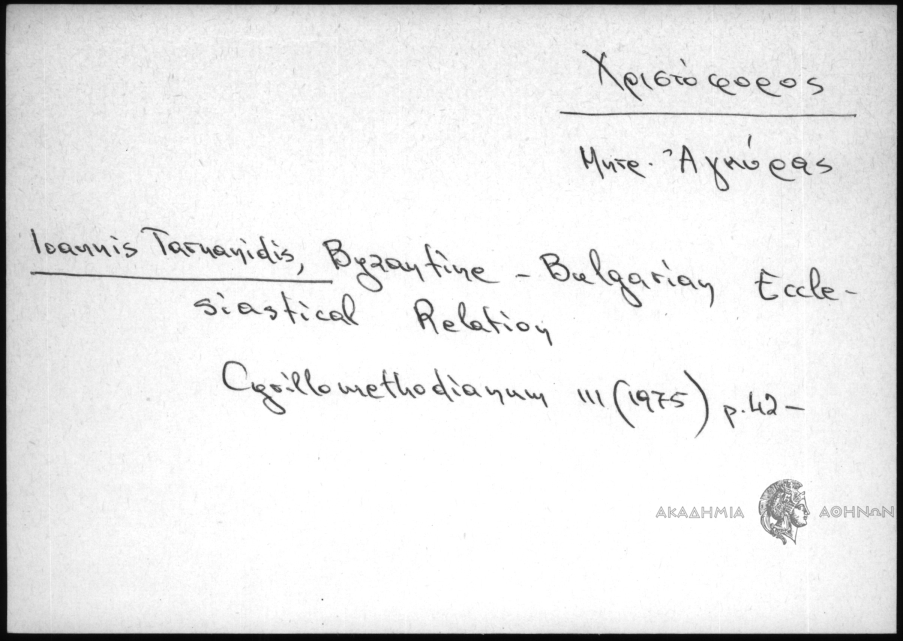 Χριστόφορος
Μητρ. Ἀγκύρας
Ioannis Tarnanidis, Byzantine - Bulgarian Eccle-
siastical Relation
Cyrillomethodianum III (1975) p.42-
ΑΚΑΔΗΜΙΑ ΑΘΗΝΩΝ